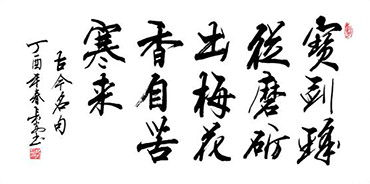 寶劍鋒
從磨礪
出梅花
香自苦
寒来
古今名句
丁酉年春